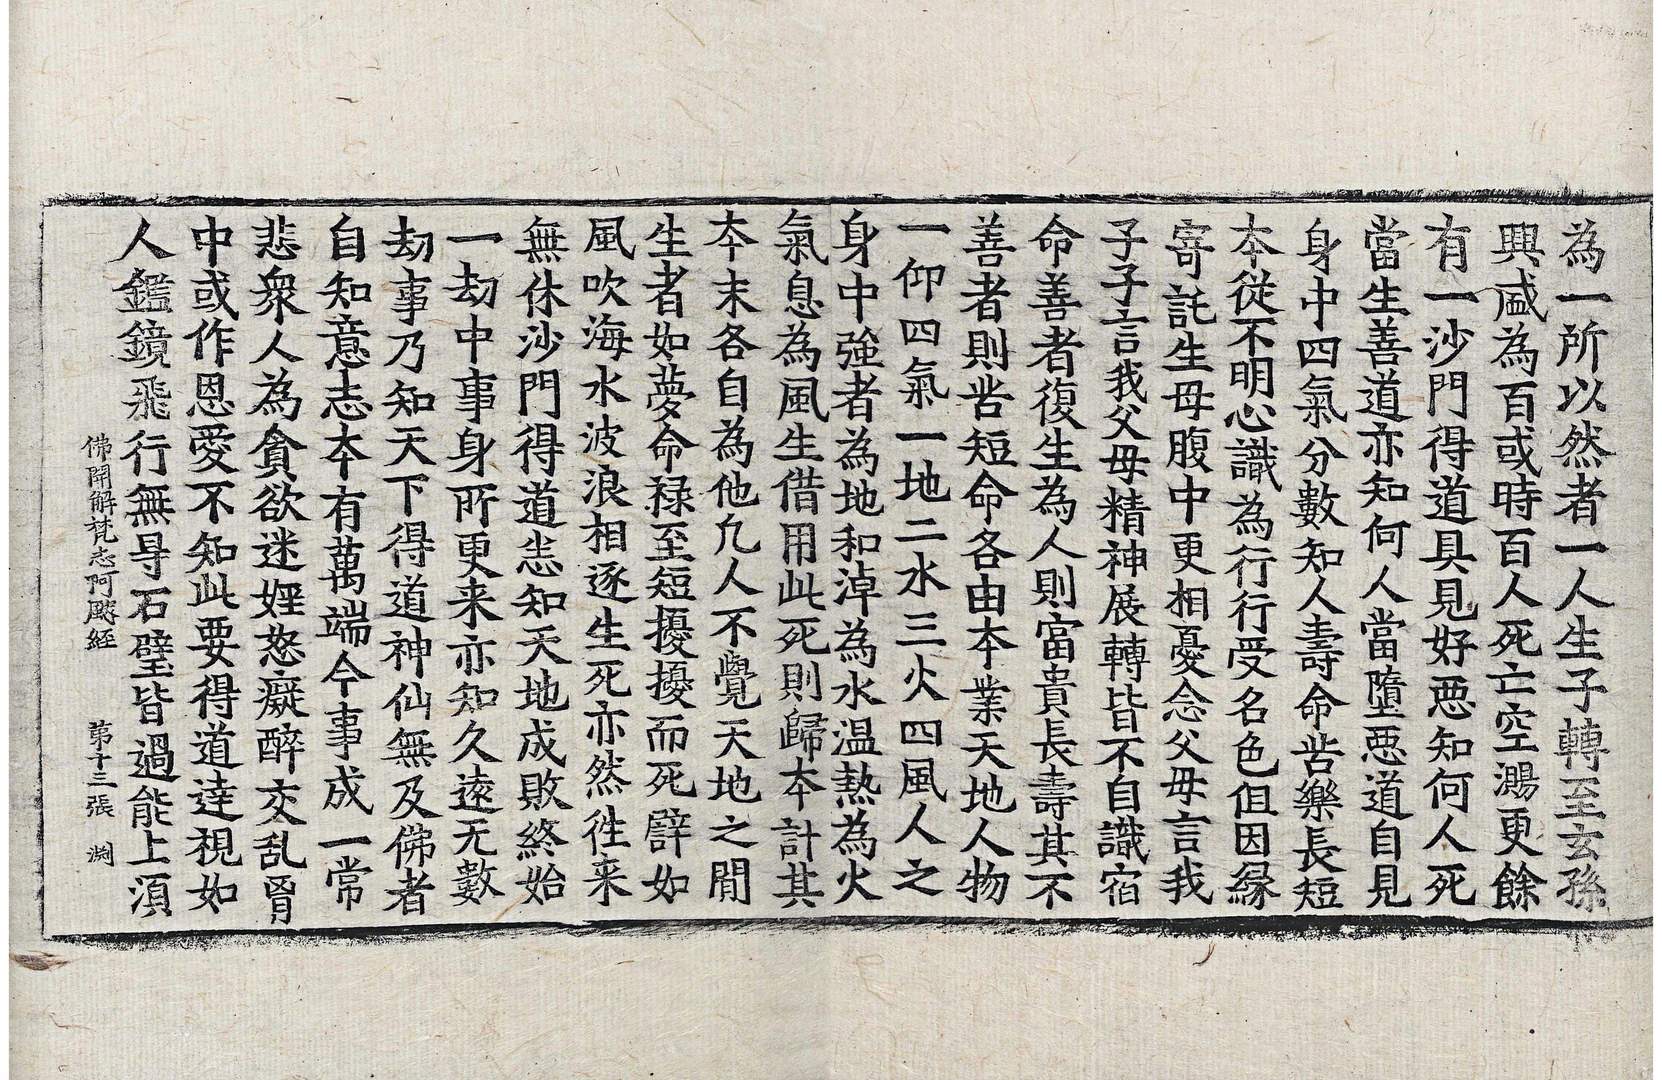 為一所以然者一人生子轉至玄孫
興盛為百或時百人死亡空鴻更餘
有一沙門得道具見好惡知何人死
當生善道亦知何人當墮惡道自見
身中四氣分數知人壽命苦樂長短
本從不明心識為行行受名色但因緣
寄託生母腹中更相憂念父母言我
子子言我父母精神展轉皆不自識宿
命善者復生為人則富貴長壽其不
善者則苦短命各由本業天地人物
一仰四氣一地二水三火四風人之
身中強者為地和淖為水温熱為火
氣息為風生借用此死則歸本計其
本末各自為他凢人不覺天地之閒
生者如夢命禄至短擾擾而死譬如
風吹海水波浪相逐生死亦然徃来
無休沙門得道悉知天地成敗終始
一劫中事身所更来亦知久遠无數
劫事乃知天下得道神仙無及佛者
自知意志本有萬端今事成一常
悲衆人為貪欲迷婬怒癡醉交乱胷
中或作恩愛不知此要得道達視如
人鑑鏡飛行無㝵石壁皆過能上湏
佛開解梵志阿颰經 第十三張 渊